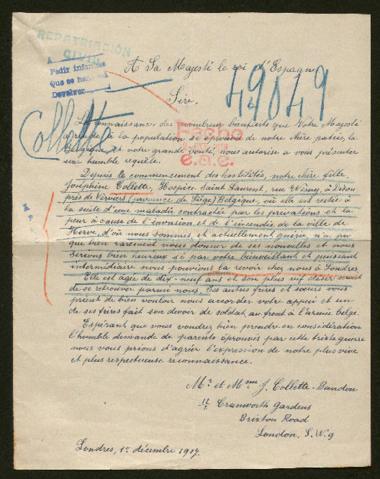 REPATRIACIÓN
CIVIL
A Sa Majesté le roi d'Espagne
Pedir informes
que se
Devolver
49049
Sire,
Collette
connaissance des nombreux bienfaits que Votre Majesté
la population si éprouvée de notre chère patrie, la
Belgique et votre grande bonté, nous autorise à vous présenter
une humble requête.
Depuis le commencement des hostilités, notre chère fille
Joséphine Collette, Hospice Saint Laurent, rue
près de Verviers (province de Liége) Belgique, où elle est restée à
la suite d'une maladie contractée par les privations et la
peur à cause de l'invasion et de l'incendie de la ville de
Herve d'où nous sommes, et actuellement guérie n'a pu
que bien rarement nous donner de ses nouvelles et nous
serions bien heureux si par votre bienveillant et puissant
intermédiaire nous pouvions la revoir chez nous à Londres
Elle est agée de dix neuf ans et
de se retrouver parmi nous. Ses autres frères et sœurs vous
prient de bien vouloir nous accorder votre appui et un
de ses frères fait son devoir de soldat au front à l'armée Belge.
Espérant que vous voudrez bien prendre en considération
l'humble demande de parents éprouvés par cette triste guerre
nous vous prions d'agréer l'expression de notre plus vive
et plus respectueuse reconnaissance.
Mr et Mme J. Collette-
17 Cranworth Gardens
Brixton Road
London, S.W.9
Londres, 1r décembre 1917.